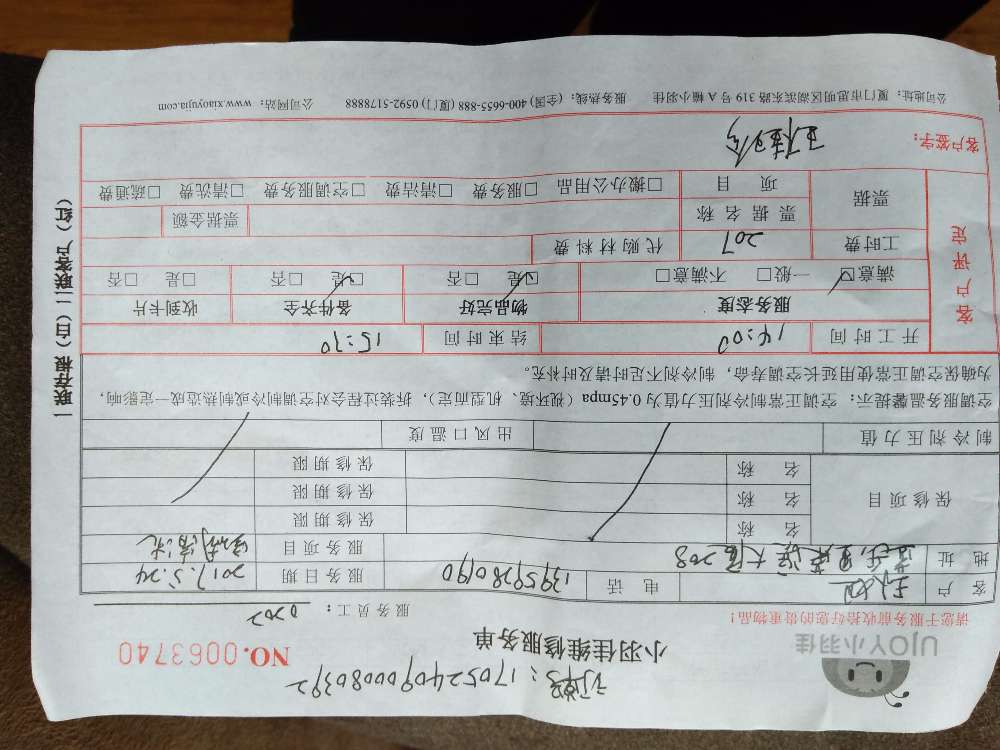 订单号：1705240900080392
UJOY小羽佳
小羽佳维修服务单
NO.0063740
请您于服务前收拾好您的贵重物品！
服务员工：0202
客户 电话 13959280190 服务日期 2017.5.24
地址 大厦208 服务项目 清洗
保修项目 名称 保修期限
名称 保修期限
名称 保修期限
制冷剂压力值 出风口温度
空调服务温馨提示：空调正常制冷剂压力值为0.45mpa（视环境、机型而定），拆装过程会对空调制冷或制热造成一定影响，
为确保空调正常使用延长空调寿命，制冷剂不足时请及时补充。
客户评定
开工时间 14:00 结束时间 15:30
服务态度 物品完好 备件齐全 收到卡片
满意☑ 一般□ 不满意□ ☑是 □否 ☑是 □否 □是 □否
工时费 207 代购材料费
票据 票据名称 票据金额
项目 □搬办公用品 □服务费 □清洁费 □空调服务费 □清洗费 □疏通费
客户签字：
公司地址：厦门市思明区湖滨东路319号A幢小羽佳 服务热线：(全国) 400-6655-888 (厦门) 0592-5178888 公司网站：www.xiaoyujia.com
一联存根（白）二联客户（红）